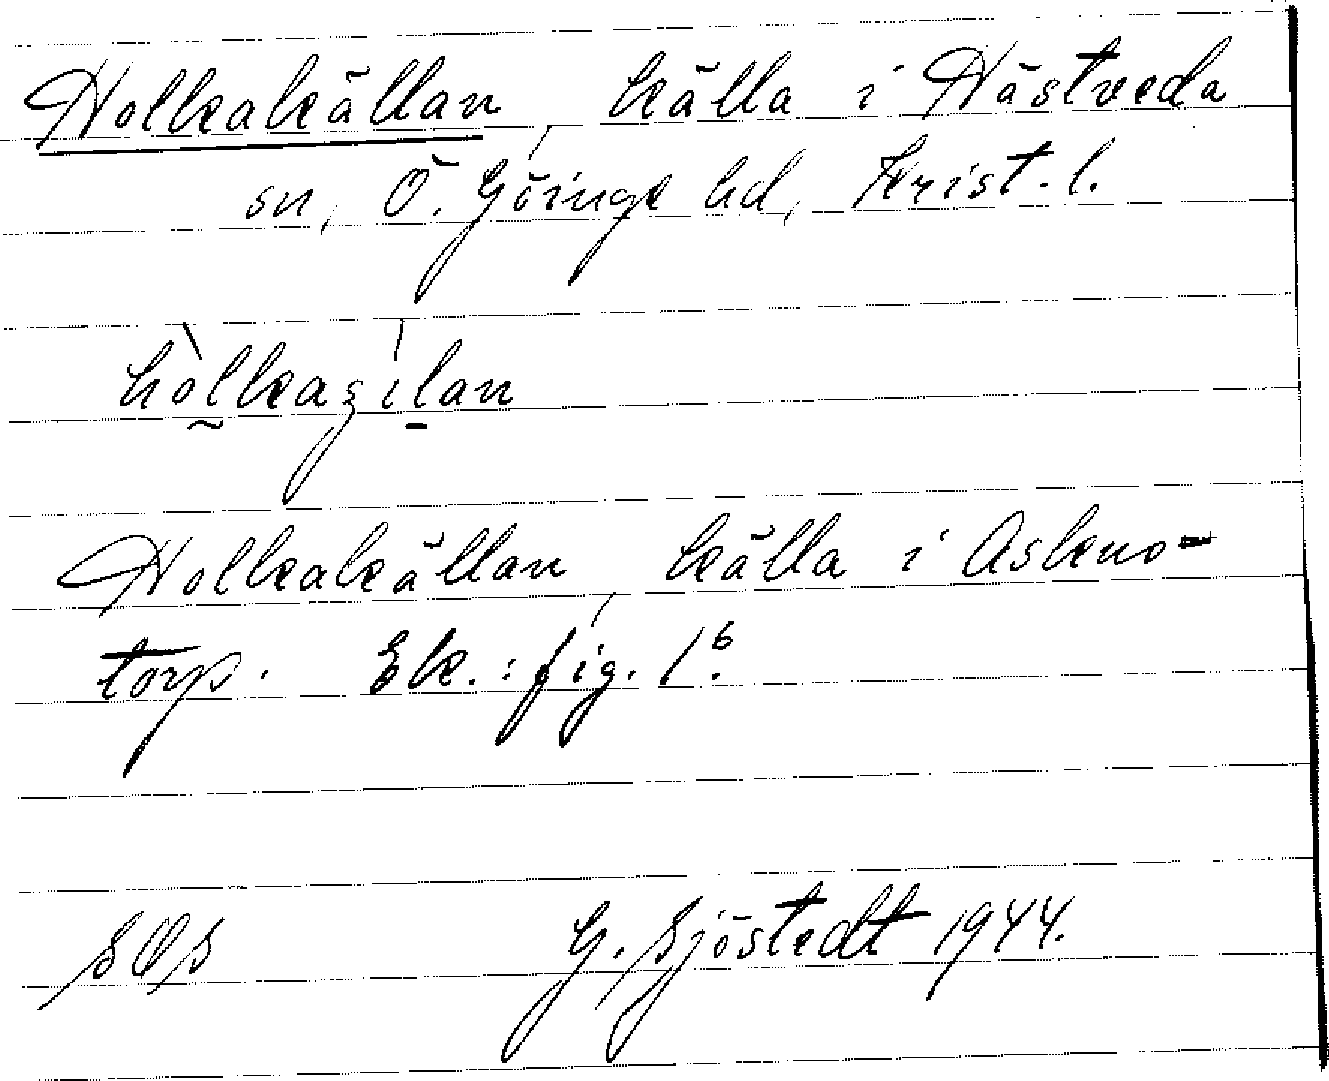 Holkakällan, källa i Hästveda
sn, Ö. Göinge hd, Krist. l.
hòlkaʒílan
Holkakällan, källa i Askeno-
torp. Ek.: fig. 1⁶.
SOS G. Sjöstedt 1944.